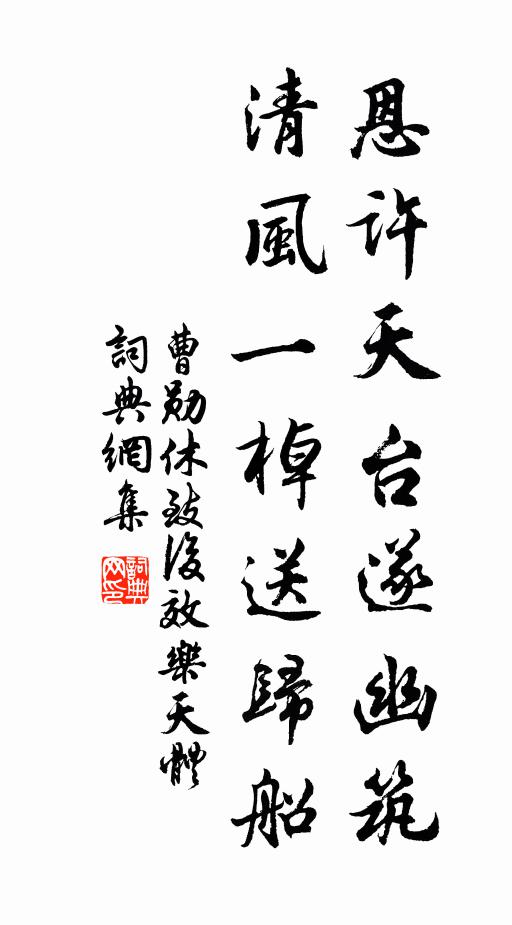 恩許天台遂幽筑
清風一棹送歸船
曹勛休致後效樂天體
詞典網集
詞典网印